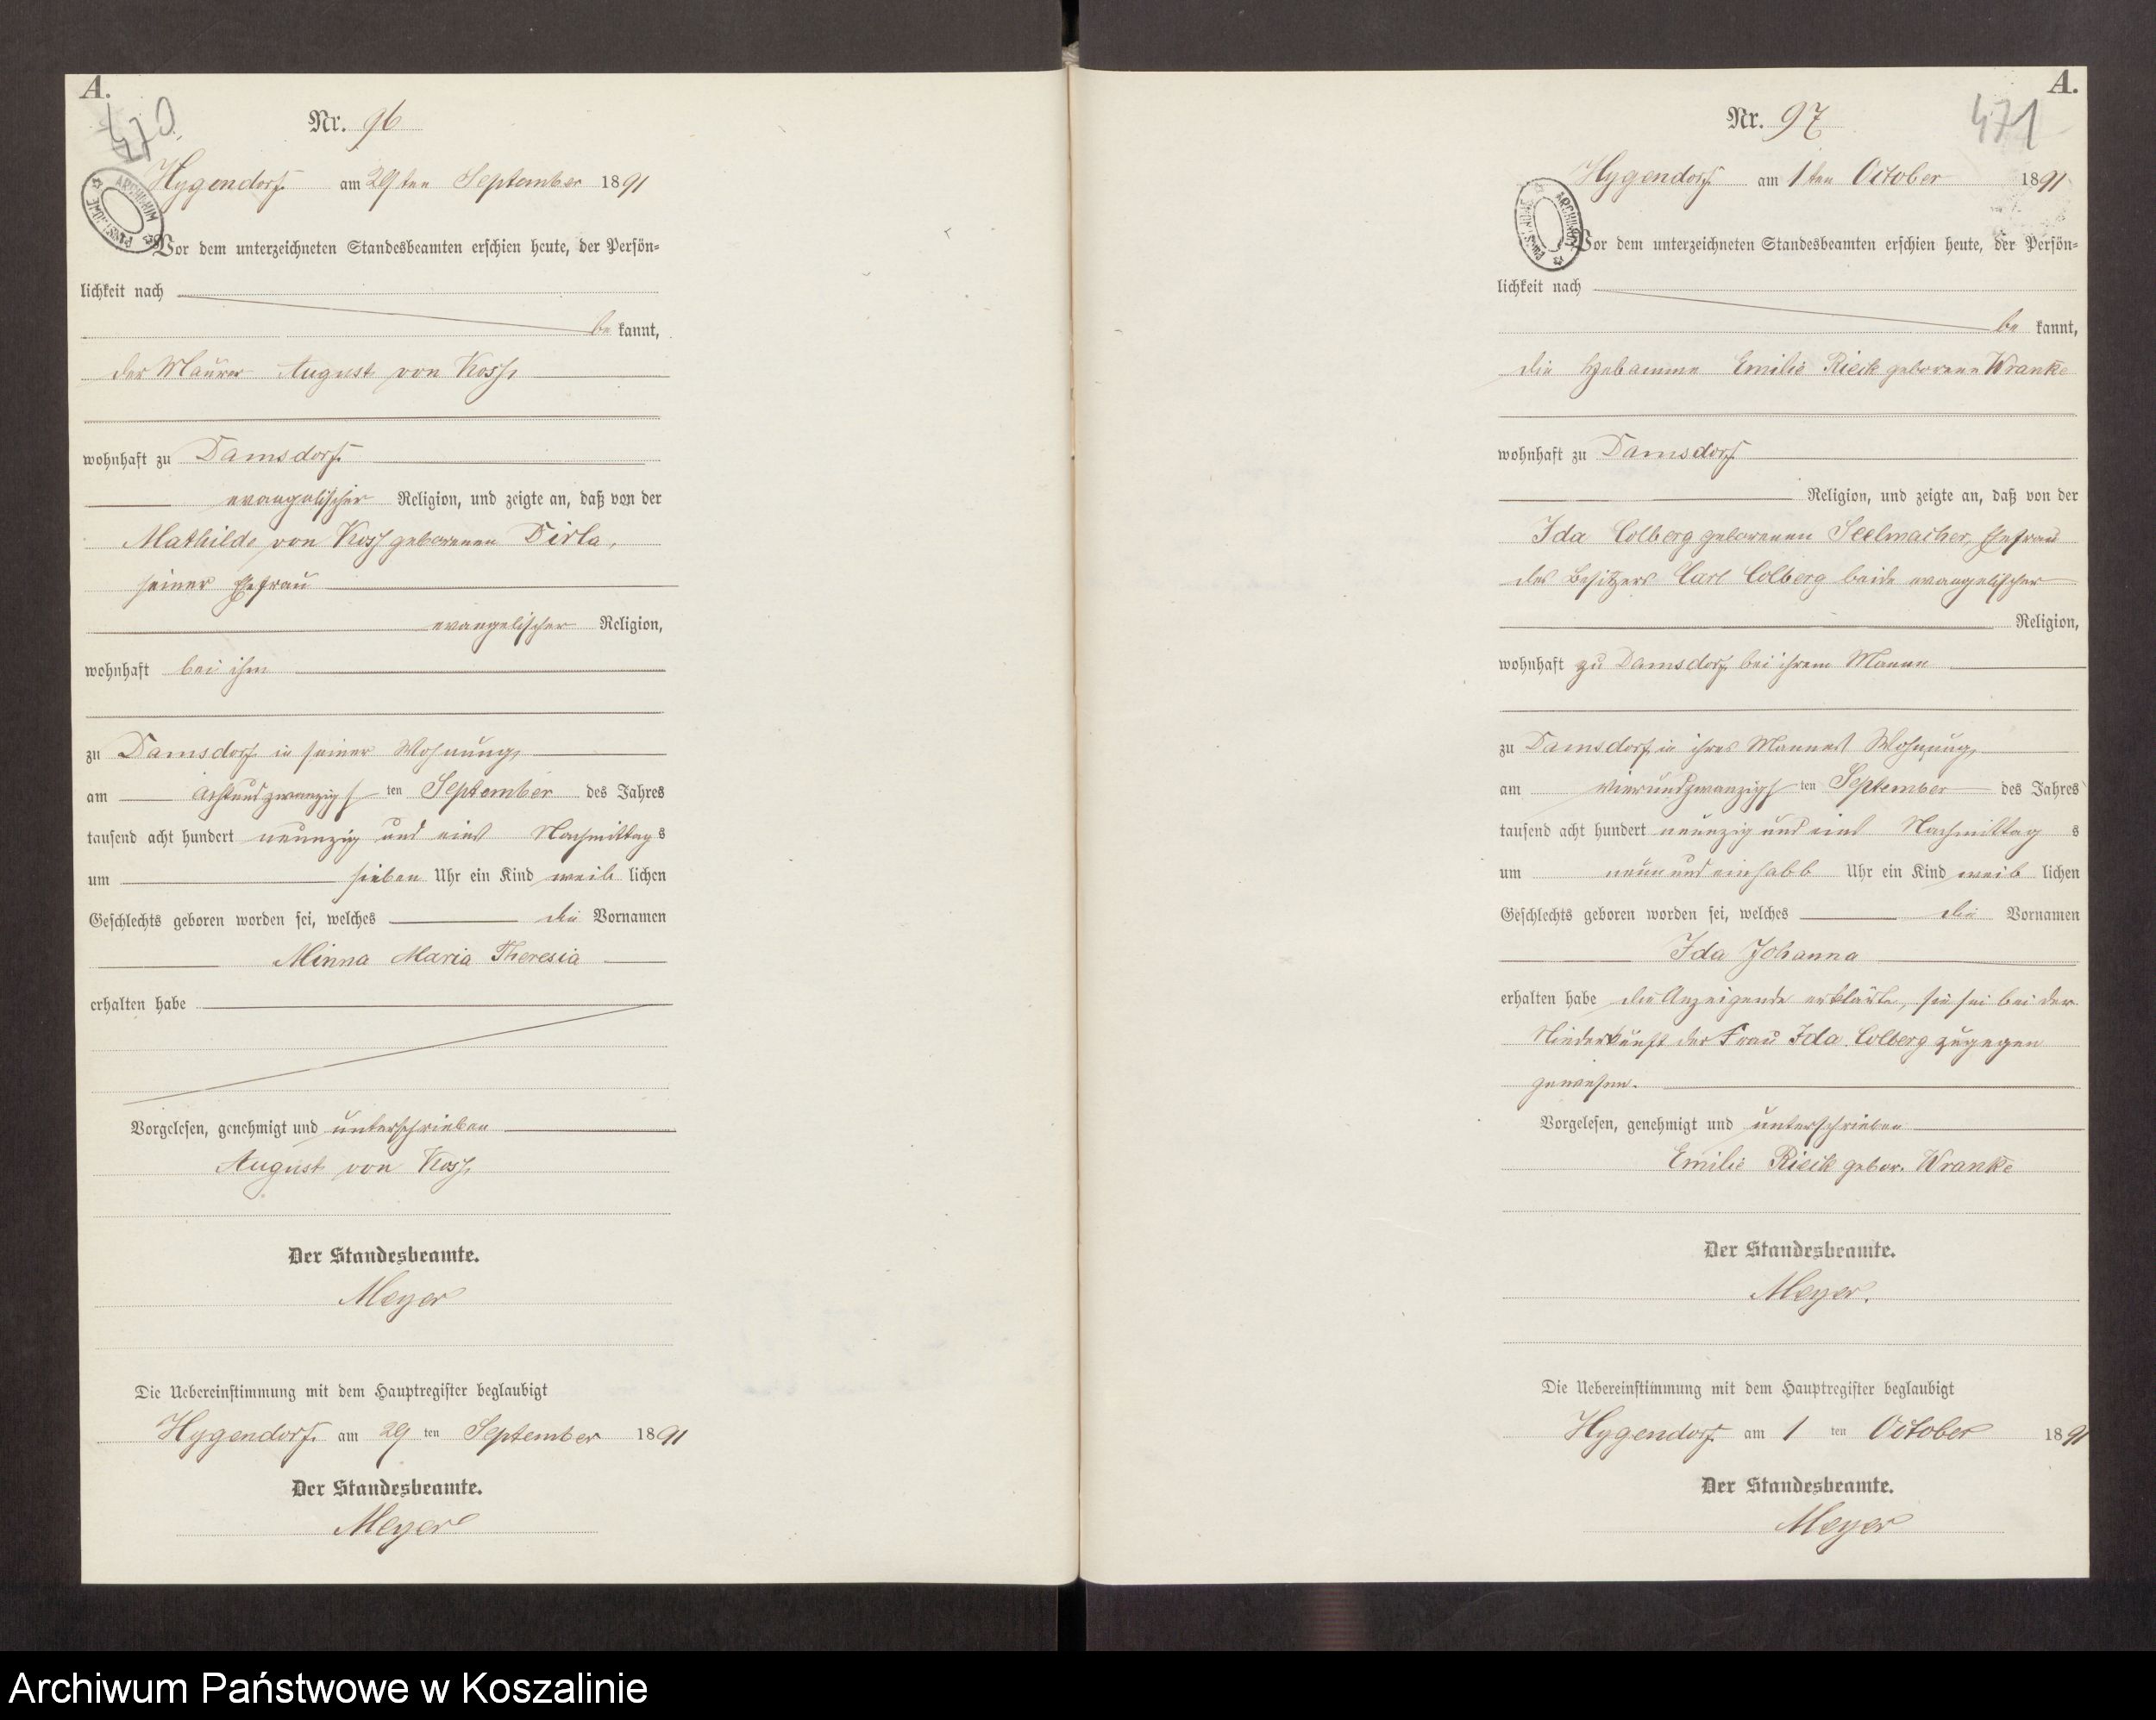 A.
470
Nr. 96
Hygendorf am 29ten September 1891
ARCHIWUM PAŃSTWOWE
Vor dem unterzeichneten Standesbeamten erschien heute, der Persön=
lichkeit nach
be kannt,
der Maurer August von Koss,
wohnhaft zu Damsdorf
evangelischer Religion, und zeigte an, daß von der
Mathilde von Koss geborenen Dirla,
seiner Ehefrau
evangelischer Religion,
wohnhaft bei ihm
zu Damsdorf in seiner Wohnung,
am achtundzwanzigsten September des Jahres
tausend acht hundert neunzig und eins Nachmittags
um sieben Uhr ein Kind weib lichen
Geschlechts geboren worden sei, welches die Vornamen
Minna Maria Theresia
erhalten habe
Vorgelesen, genehmigt und unterschrieben
August von Koss
Der Standesbeamte.
Meyer
Die Uebereinstimmung mit dem Hauptregister beglaubigt
Hygendorf am 29 ten September 1891
Der Standesbeamte.
Meyer
A.
471
Nr. 97
Hygendorf am 1ten October 1891
ARCHIWUM PAŃSTWOWE
Vor dem unterzeichneten Standesbeamten erschien heute, der Persön=
lichkeit nach
be kannt,
die Hebamme Emilie Rieck geborene Wranke
wohnhaft zu Damsdorf
Religion, und zeigte an, daß von der
Ida Colberg geborenen Seelmacher, Ehefrau
des Besitzers Carl Colberg beide evangelischer
Religion,
wohnhaft zu Damsdorf bei ihrem Manne
zu Damsdorf in ihres Mannes Wohnung,
am vierundzwanzigsten September des Jahres
tausend acht hundert neunzig und eins Nachmittag s
um neun und einhalb Uhr ein Kind weib lichen
Geschlechts geboren worden sei, welches die Vornamen
Ida Johanna
erhalten habe die Anzeigende erklärte, sie sei bei der
Niederkunft der Frau Ida Colberg zugegen
gewesen.
Vorgelesen, genehmigt und unterschrieben
Emilie Rieck gebor. Wranke
Der Standesbeamte.
Meyer.
Die Uebereinstimmung mit dem Hauptregister beglaubigt
Hygendorf am 1 ten October 1891
Der Standesbeamte.
Meyer
Archiwum Państwowe w Koszalinie